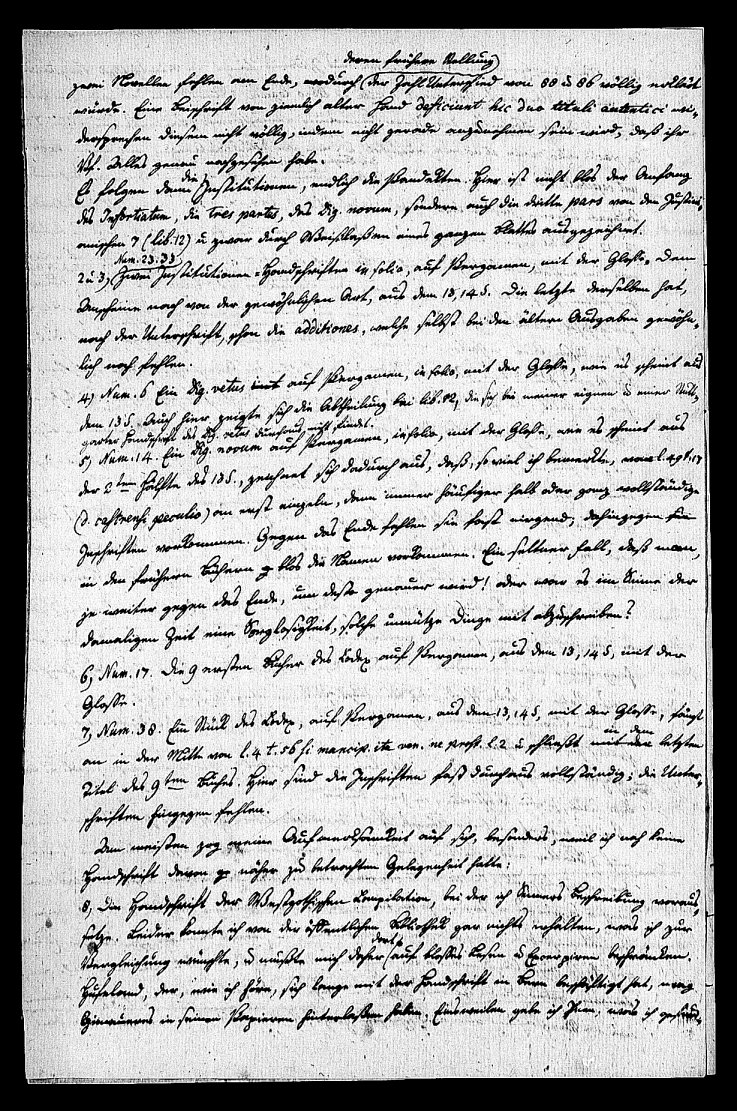 deren frühere Stellung
zwei Novellen fehlen am Ende, wodurch der Zahl Unterschied von 88 u 86 völlig erklärt
würde. Eine Beischrift von ziemlich alter Hand deficiunt hic duo tituli autentici wi-
dersprechen diesem nicht völlig, indem nicht gerade anzunehmen sein wird, daß ihr
Vf. alles genau nachgesehen habe.
Es folgen dann die Institutionen, endlich die Pandekten. Hier ist nicht blos der Anfang
des Infortiatum, die tres partes, des Dig. novum, sondern auch die dritte pars von den Justini-
anischen 7 (lib. 12) u zwar durch Weißlaßen eines ganzen Blattes ausgezeichnet.
Num. 23. 33
2 u 3, Zwei Institutionen-Handschriften in folio, auf Pergamen, mit der Glosse. Dem
Anscheine nach von der gewöhnlichen Art, aus dem 13, 14 S. Die letzte derselben hat,
nach der Unterschrift, schon die additiones, welche selbst bei den ältern Ausgaben gewöhn-
lich noch fehlen.
4, Num. 6 Ein Dig. vetus auf Pergamen, in folio, mit der Glosse, wie es scheint aus
dem 13 S. Auch hier zeigte sich die Abtheilung bei lib. 12, die sich bei meiner eignen u einer Stutt-
garter Handschrift des Dig. vetus durchaus nicht findet.
5, Num. 14. Ein Dig. novum auf Pergamen, in folio, mit der Glosse, wie es scheint aus
der 2ten Hälfte des 13 S., zeichnet sich dadurch aus, daß, so viel ich bemerkte, von l. 49 t. 17
(d. castrensi peculio) an erst einzeln, dann immer häufiger halb oder ganz vollständige
Inschriften vorkommen. Gegen das Ende fehlen sie fast nirgend, dahingegen
in den frühern Büchern blos die Namen vorkommen. Ein seltner Fall, daß man,
je weiter gegen das Ende, um desto genauer wird! oder war es im Sinne der
damaligen Zeit eine Sorglosigkeit, solche unnütze Dinge mit abzuschreiben?
6, Num. 17. Die 9 ersten Bücher des Codex auf Pergamen, aus dem 13, 14 S, mit der
Glosse.
7, Num. 38. Ein Stück des Codex, auf Pergamen, aus dem 13, 14 S, mit der Glosse, fängt
an in der Mitte von l. 4 t. 56 si mancip. ita ven. ne prost. l. 2 u schließt in dem letzten
Titel des 9ten Buches. Hier sind die Inschriften fast durchaus vollständig; die Unter-
schriften hingegen fehlen.
Am meisten zog meine Aufmerksamkeit auf sich, besonders, weil ich noch keine
Handschrift davon näher zu betrachten Gelegenheit hatte:
8, Die Handschrift der Westgothischen Compilation, bei der ich Ihre Beschreibung voraus-
setze. Leider konnte ich von der öffentlichen Bibliothek gar nichts erhalten, was ich zur
Vergleichung wünschte, u mußte mich daher dort auf bloßes Lesen u Excerpiren beschränken.
Hufeland, der, wie ich höre, sich lange mit der Handschrift in Bern beschäftigt hat, mag
Genaueres in seinen Papieren hinterlaßen haben. Einstweilen gebe ich Ihnen, was ich gefund-